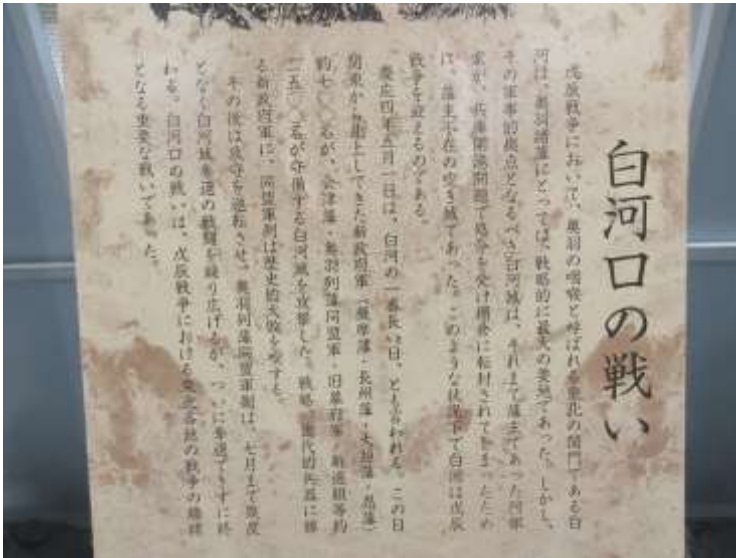 白河口の戦い
戊辰戦争において、奥羽の咽喉と呼ばれる東北の関門である白
河は、奥羽諸藩にとっては、戦略的に最大の要地であった。しかし、
その軍事的拠点となるべき白河城は、それまで藩主であった阿部
家が、兵庫開港問題で処分を受け棚倉に転封されてしまったため
に、藩主不在の空き城であった。このような状況下で白河は戊辰
戦争を迎えるのである。
慶応四年五月一日は、白河の一番長い日、とも言われる。この日
関東から北上してきた新政府軍（薩摩藩・長州藩・大垣藩・忍藩）
約七〇〇名が、会津藩・奥羽列藩同盟軍・旧幕府軍・新選組等約
二五〇〇名が守備する白河城を攻撃した。戦略、近代的兵器に勝
る新政府軍に、同盟軍側は歴史的大敗を喫する。
その後は攻守を逆転させ、奥羽列藩同盟軍側は、七月まで幾度
となく白河城奪還の戦闘を繰り広げるが、ついに奪還できずに終
わる。白河口の戦いは、戊辰戦争における東北各地の戦争の端緒
となる重要な戦いであった。